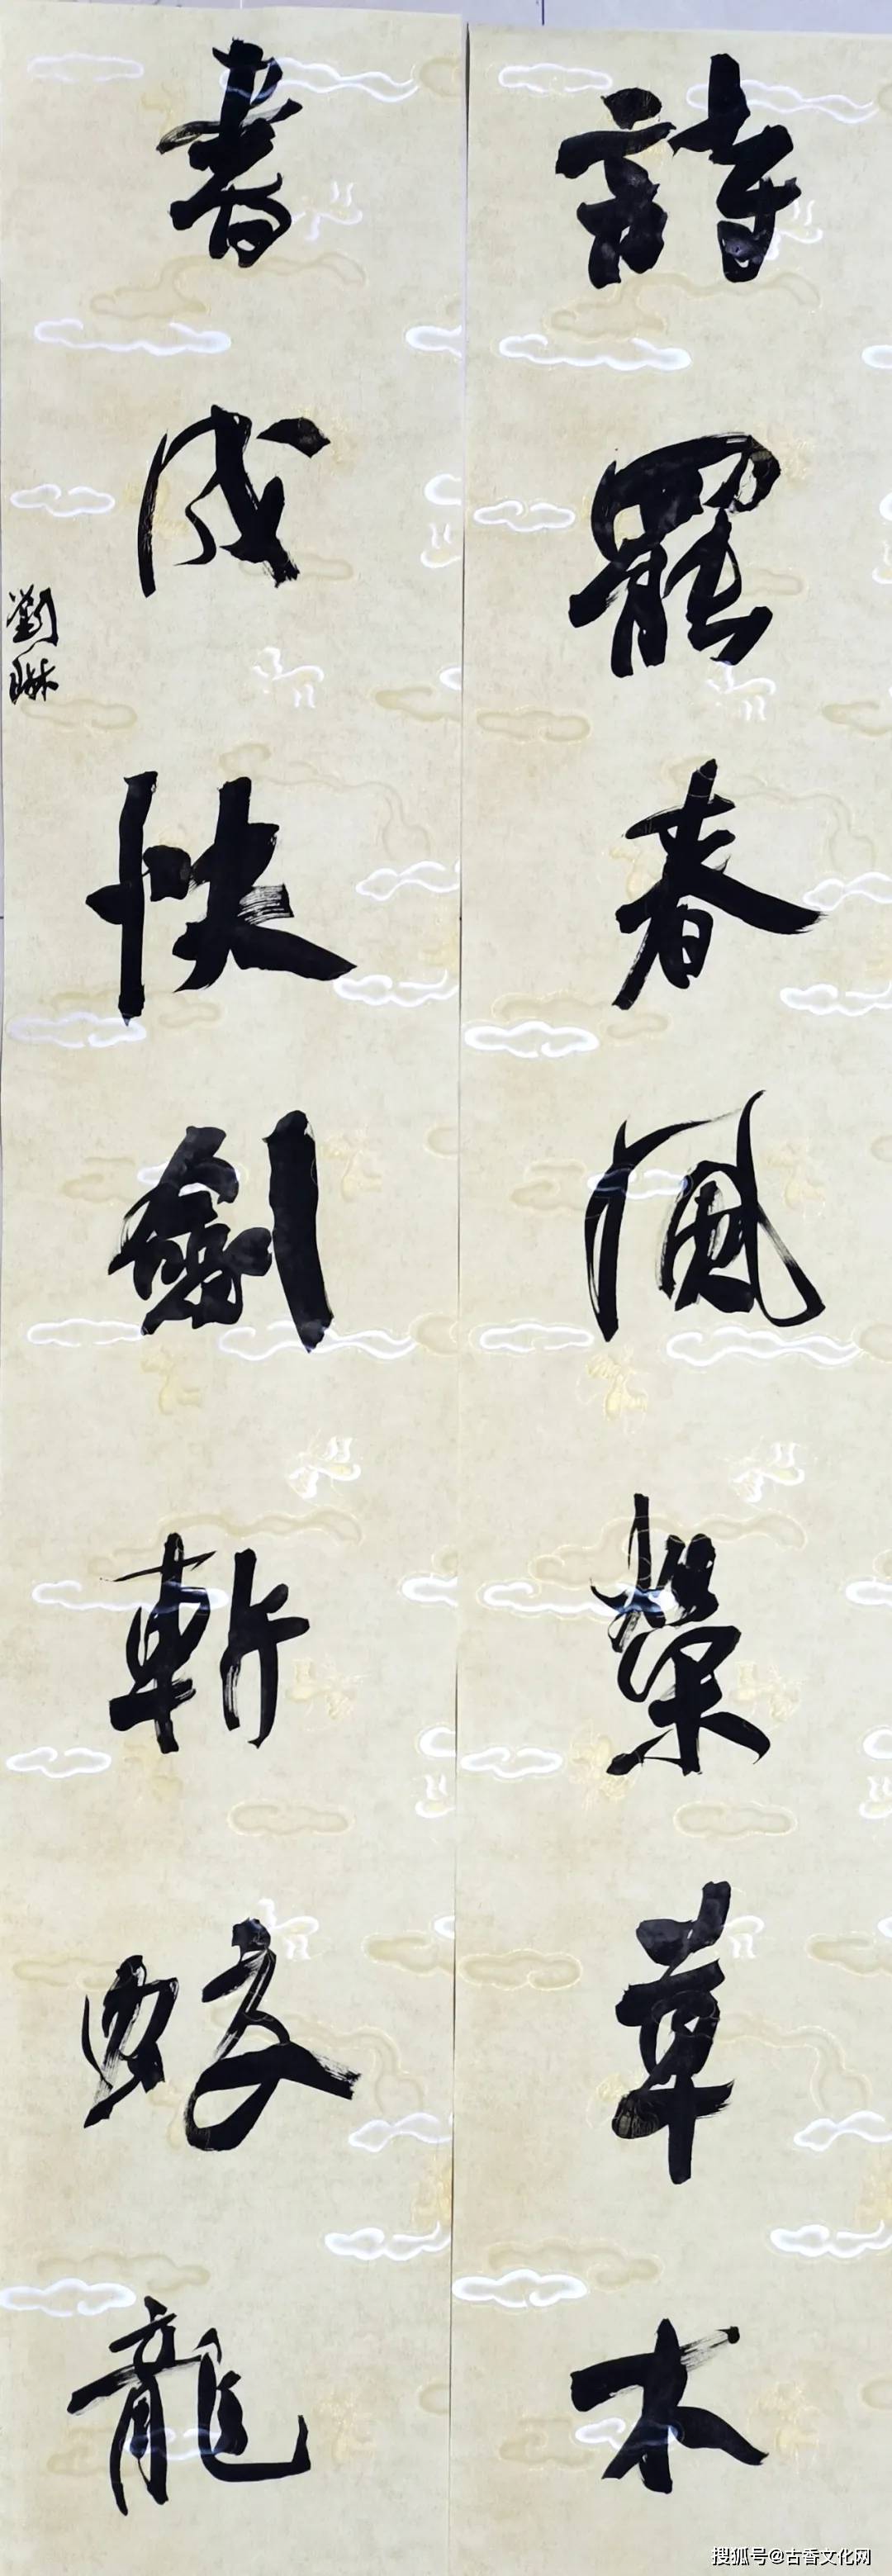 詩罷春風榮草木
書成快劍斬蛟龍
劉琳
搜狐号@古香文化网